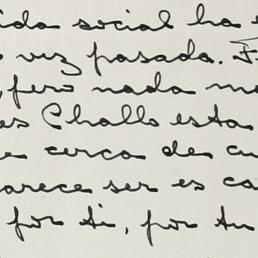 ida social ha e
vez pasada. F
, pero nada m
es Challo esta
e cerca de cu
arece ser es ca
por ti, por tu